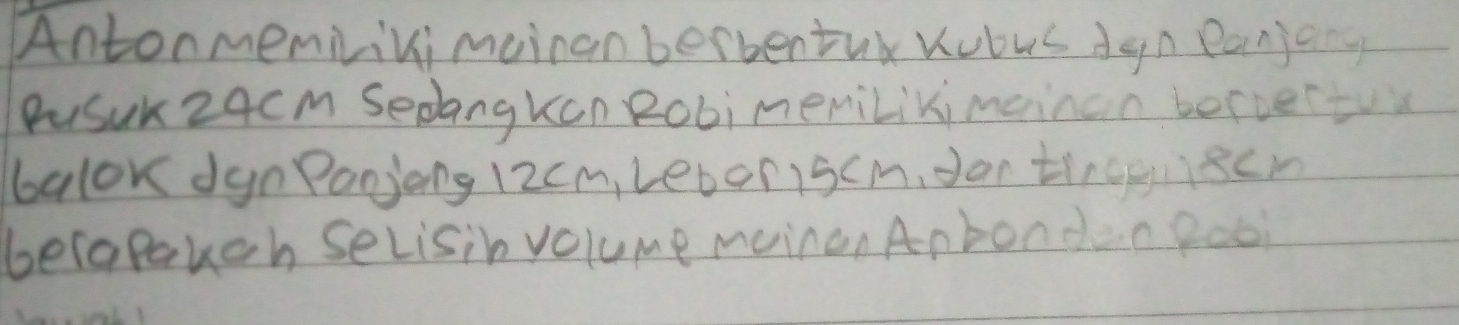 Anton memiliki mainan berbentuk kubus dgn Panjang
Rusuk 24cm Sedangkan Robi memiliki mainan berbentuk
balok dgn Panjang 12cm, Lebar 15cm, dan tinggi 18cm
berapakah Selisih volume mainan Anton dan Robi